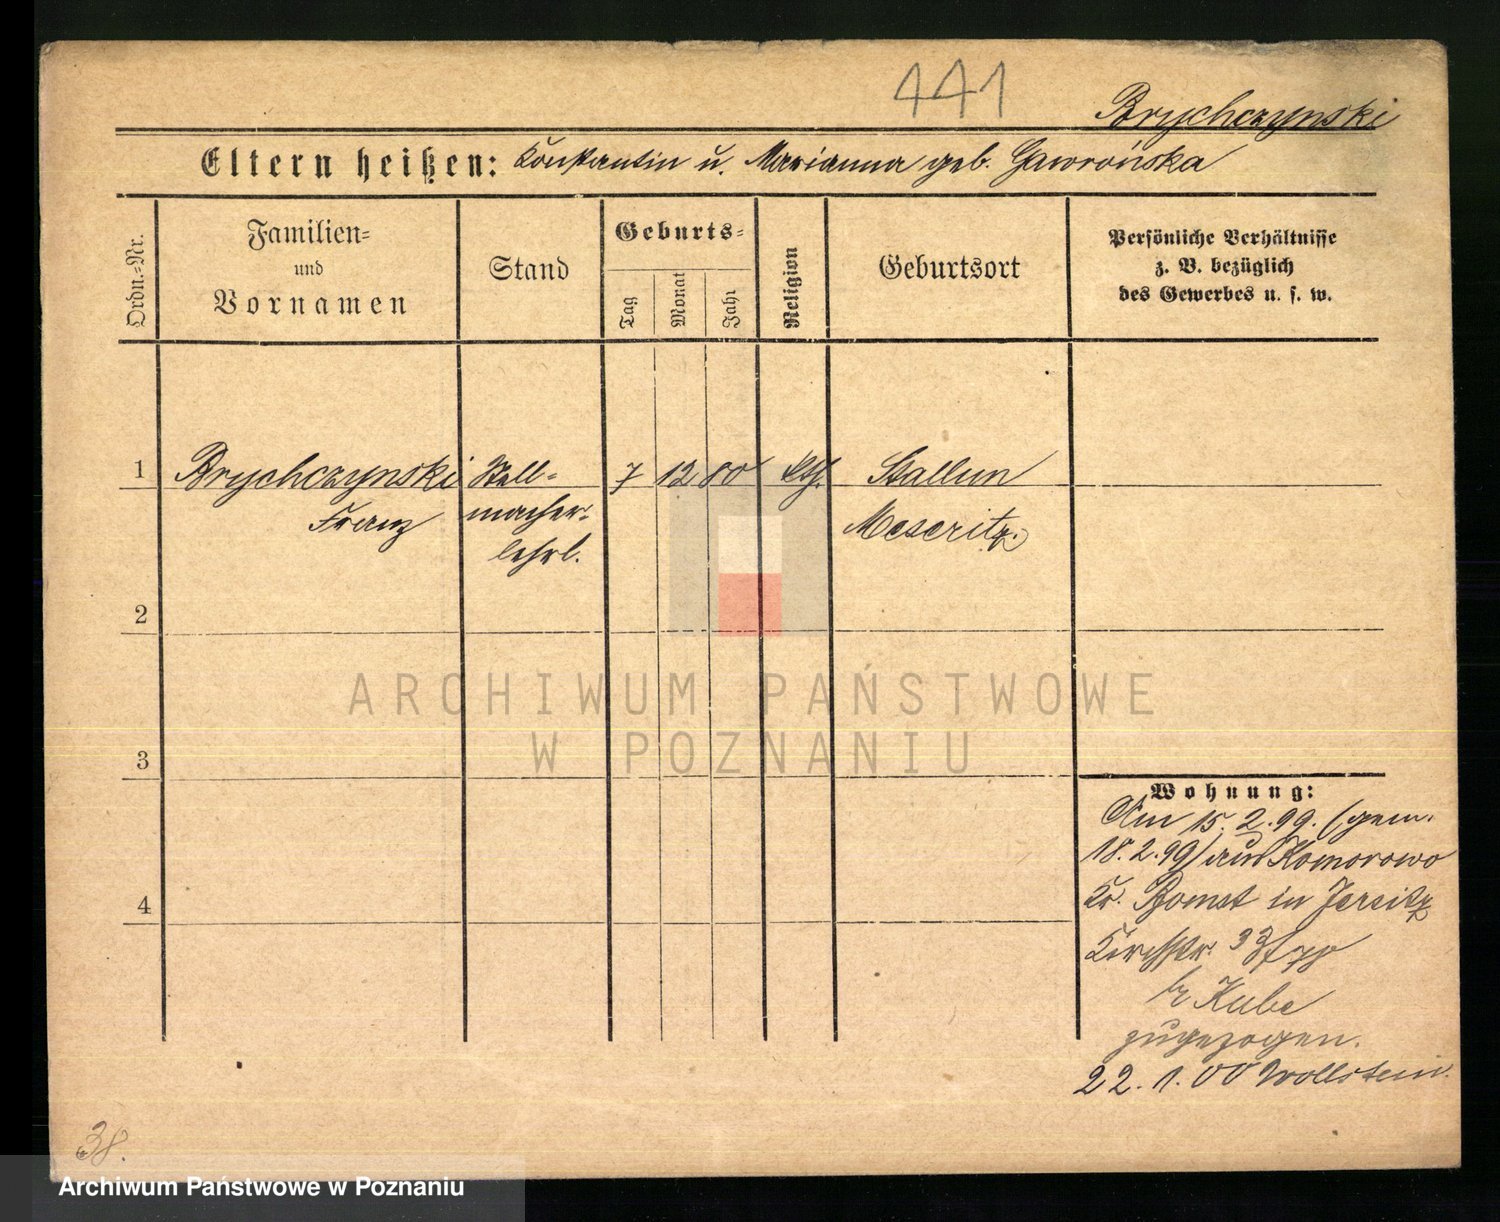 441
Brychczynski
Eltern heißen: Konstantin u. Marianna geb. Gawrońska
Ordn.=Nr.
Familien=
und
Vornamen
Stand
Geburts=
Tag
Monat
Jahr
Religion
Geburtsort
Persönliche Verhältnisse
z. B. bezüglich
des Gewerbes u. s. w.
1 Brychczynski Stell= 7 12 80 kth. Stallun
Franz macher= Meseritz.
lehrl.
2
3
4
Wohnung:
Am 15.2.99. (gem.
18.2.99) aus Komorowo
Kr. Bomst in Jersitz
Kirchstr. 33
b/ Kube
zugezogen.
22.1.00 Wollstein.
38.
ARCHIWUM PAŃSTWOWE
W POZNANIU
Archiwum Państwowe w Poznaniu